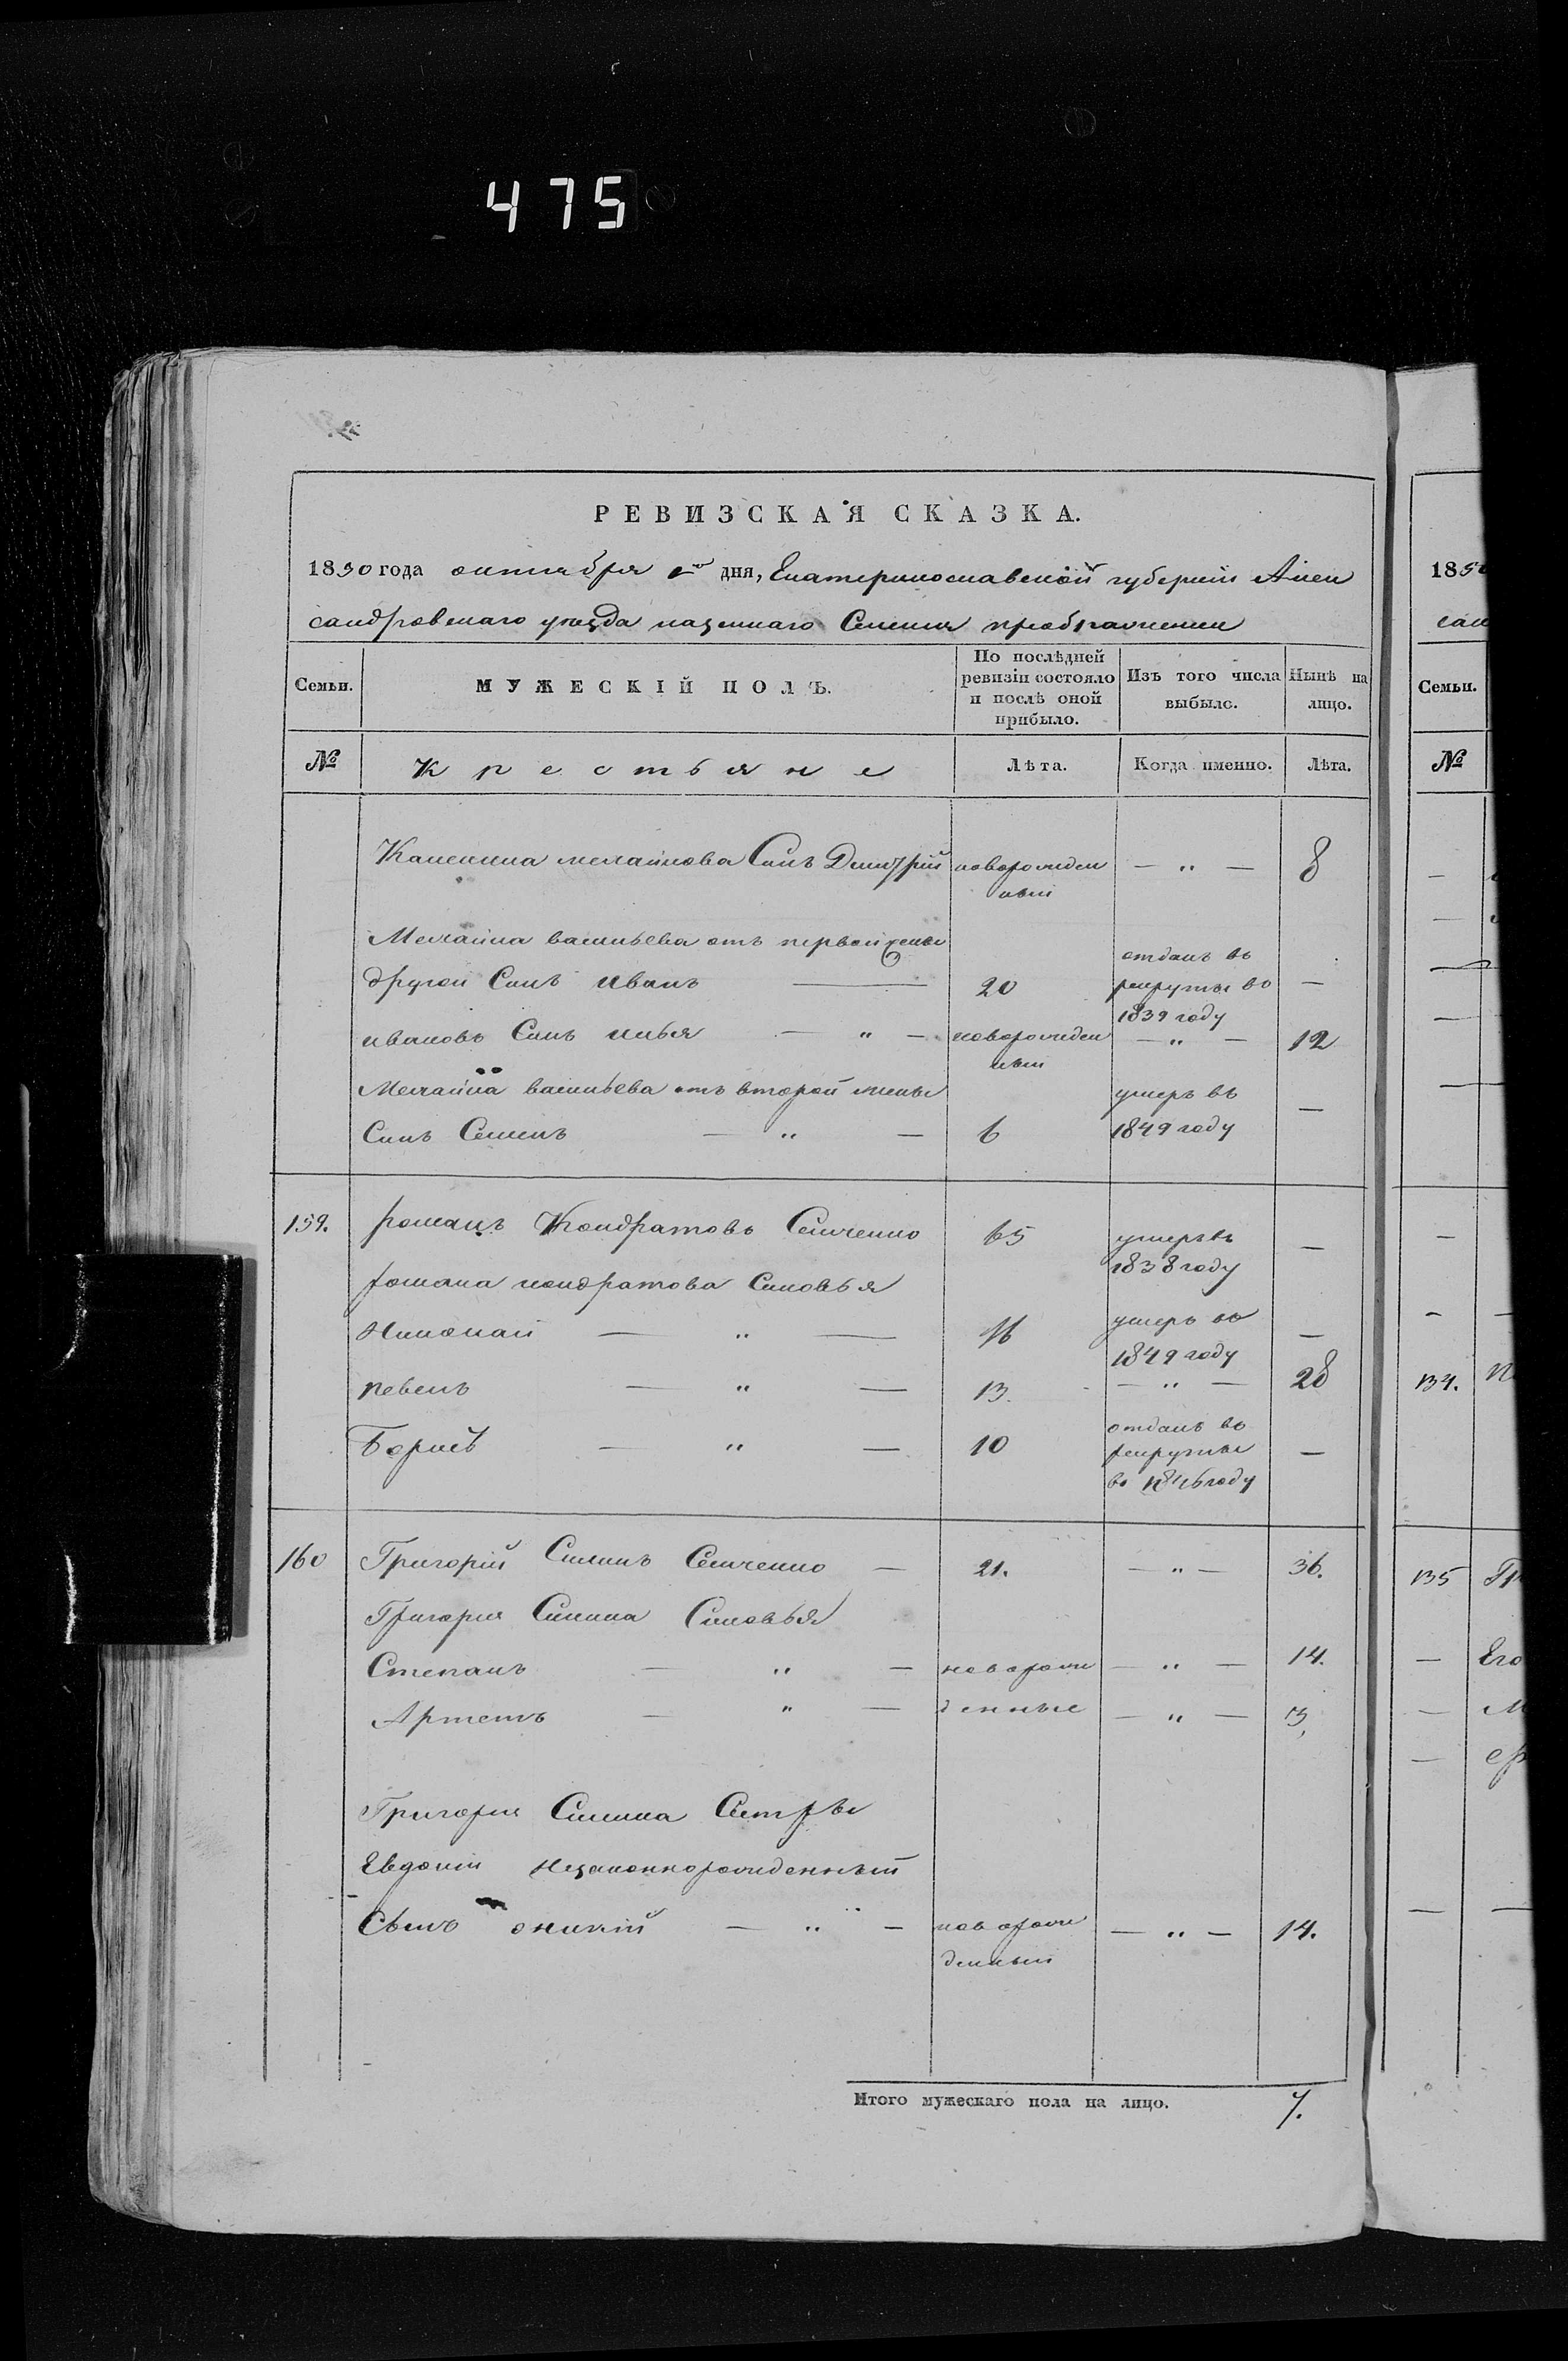 475
РЕВИЗСКАЯ СКАЗКА.
1850 года октября дня, Екатеринославской губернии Алек
сандровскаго уезда казеннаго Селения преображенки
Семьи. МУЖЕСКІЙ ПОЛЪ. По послѣдней ревизіи состояло и послѣ оной прибыло. Изъ того числа выбыло. Нынѣ на лицо.
№ Крестьяне Лѣта. Когда именно. Лѣта.
Сынъ Дмитрій новорожден — " — 8
ный
васильева отъ первой жены
другой Сынъ Иванъ — 20 отданъ въ рекруты во 1839 году —
ивановъ Сынъ илья — " — новорожден — " — 12
ный
васильева отъ второй жены умеръ въ
Сынъ Семенъ — " — 6 1849 году —
159. романъ Кондратовъ Семченко 65 умеръ въ 1838 году —
романа кондратова Сыновья
Николай — " — 16 умеръ въ 1849 году —
— " — 13. — " — 28
Борисъ — " — 10 отданъ въ рекруты во 1846 году —
160 Григорій Силинъ Семченко — 21. — " — 36.
Григория Силина Сыновья
Степанъ — " — наворож — " — 14.
Артемъ — " — денные — " — 3,
Григория Силина Сестры
Евдокіи незаконнорожденный
Сынъ — " — новорож — " — 14.
денный
Итого мужескаго пола на лицо. 7.
185
сан
Семьи.
№
134.
135 Гр
Его